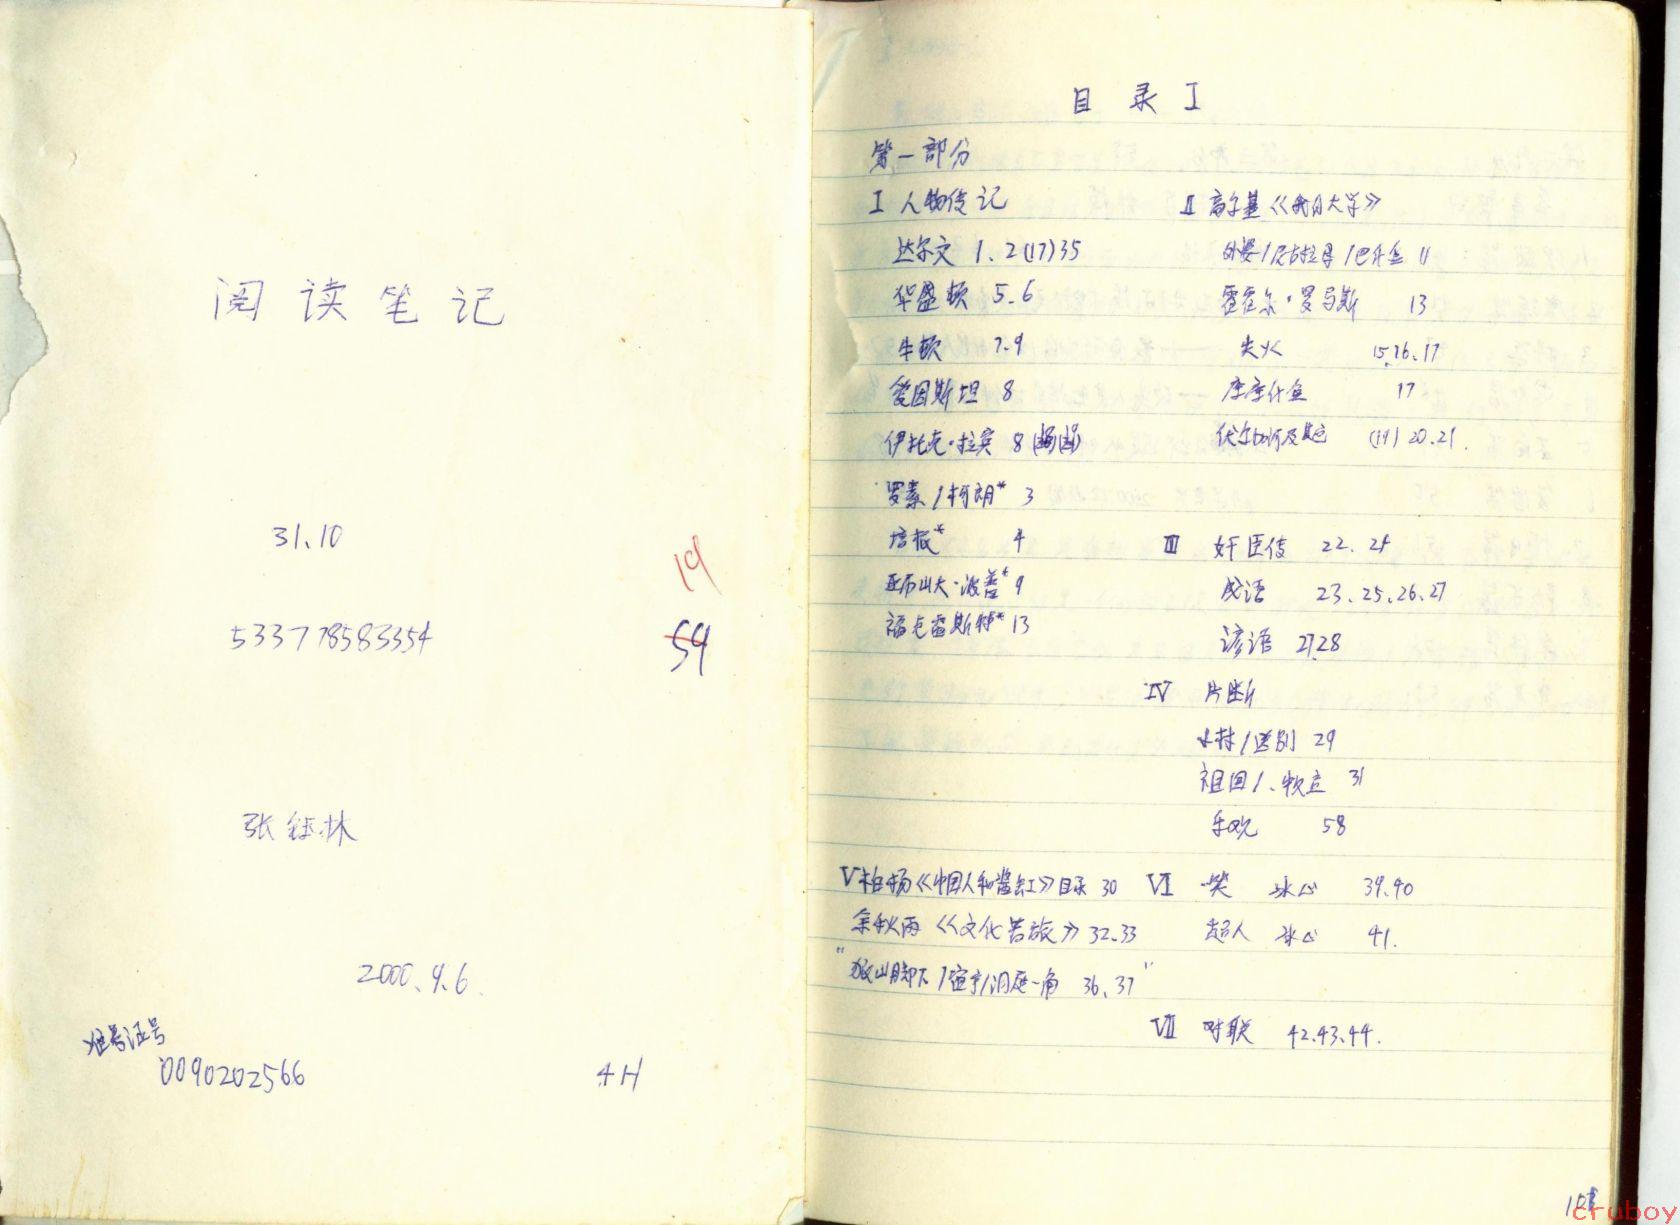 阅读笔记
31.10
19
533778583354
59
张钰林
2000.9.6.
准考证号
0090202566
4H
目录 I
第一部分
I 人物传记
达尔文 1、2(17)35
华盛顿 5、6
牛顿 7、9
爱因斯坦 8
伊扎克·拉宾 8
罗素/柯朗* 3
培根* 4
亚历山大·波普* 9
福克雷斯特* 13
II 高尔基《我的大学》
外婆/尼古拉母/巴什金 11
霍霍尔·罗马斯 13
失火 15、16、17
库库什金 17
(19) 20、21.
III 奸臣传 22、24
成语 23、25、26、27
谚语 27、28
IV 片断
水村/送别 29
祖国/、 31
58
V 柏杨《中国人和酱缸》目录 30
余秋雨《文化苦旅》32、33
"狼山脚下/ /洞庭一角 36、37"
VI 笑 冰心 39、40
超人 冰心 41.
VII 对联 42、43、44.
cruboy